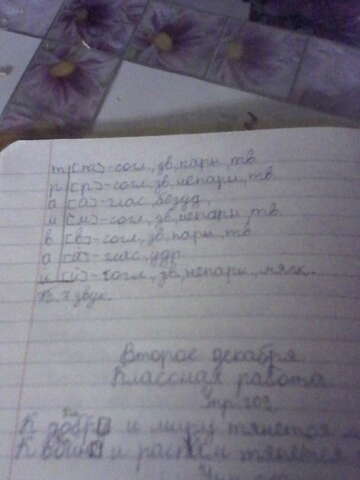 т [т]-согл., зв, парн, тв.
р [р]-согл, зв, непарн, тв.
а [а]-глас, безуд,
м [м]-согл, зв, непарн, тв.
в [в]-согл, зв, парн, тв.
а [а]-глас, удр.
й [й]-согл, зв, непарн, мягк.
7 звук.
Второе декабря.
Классная работа
Стр. 102.
К добр и миру тянется
К войн и тянется